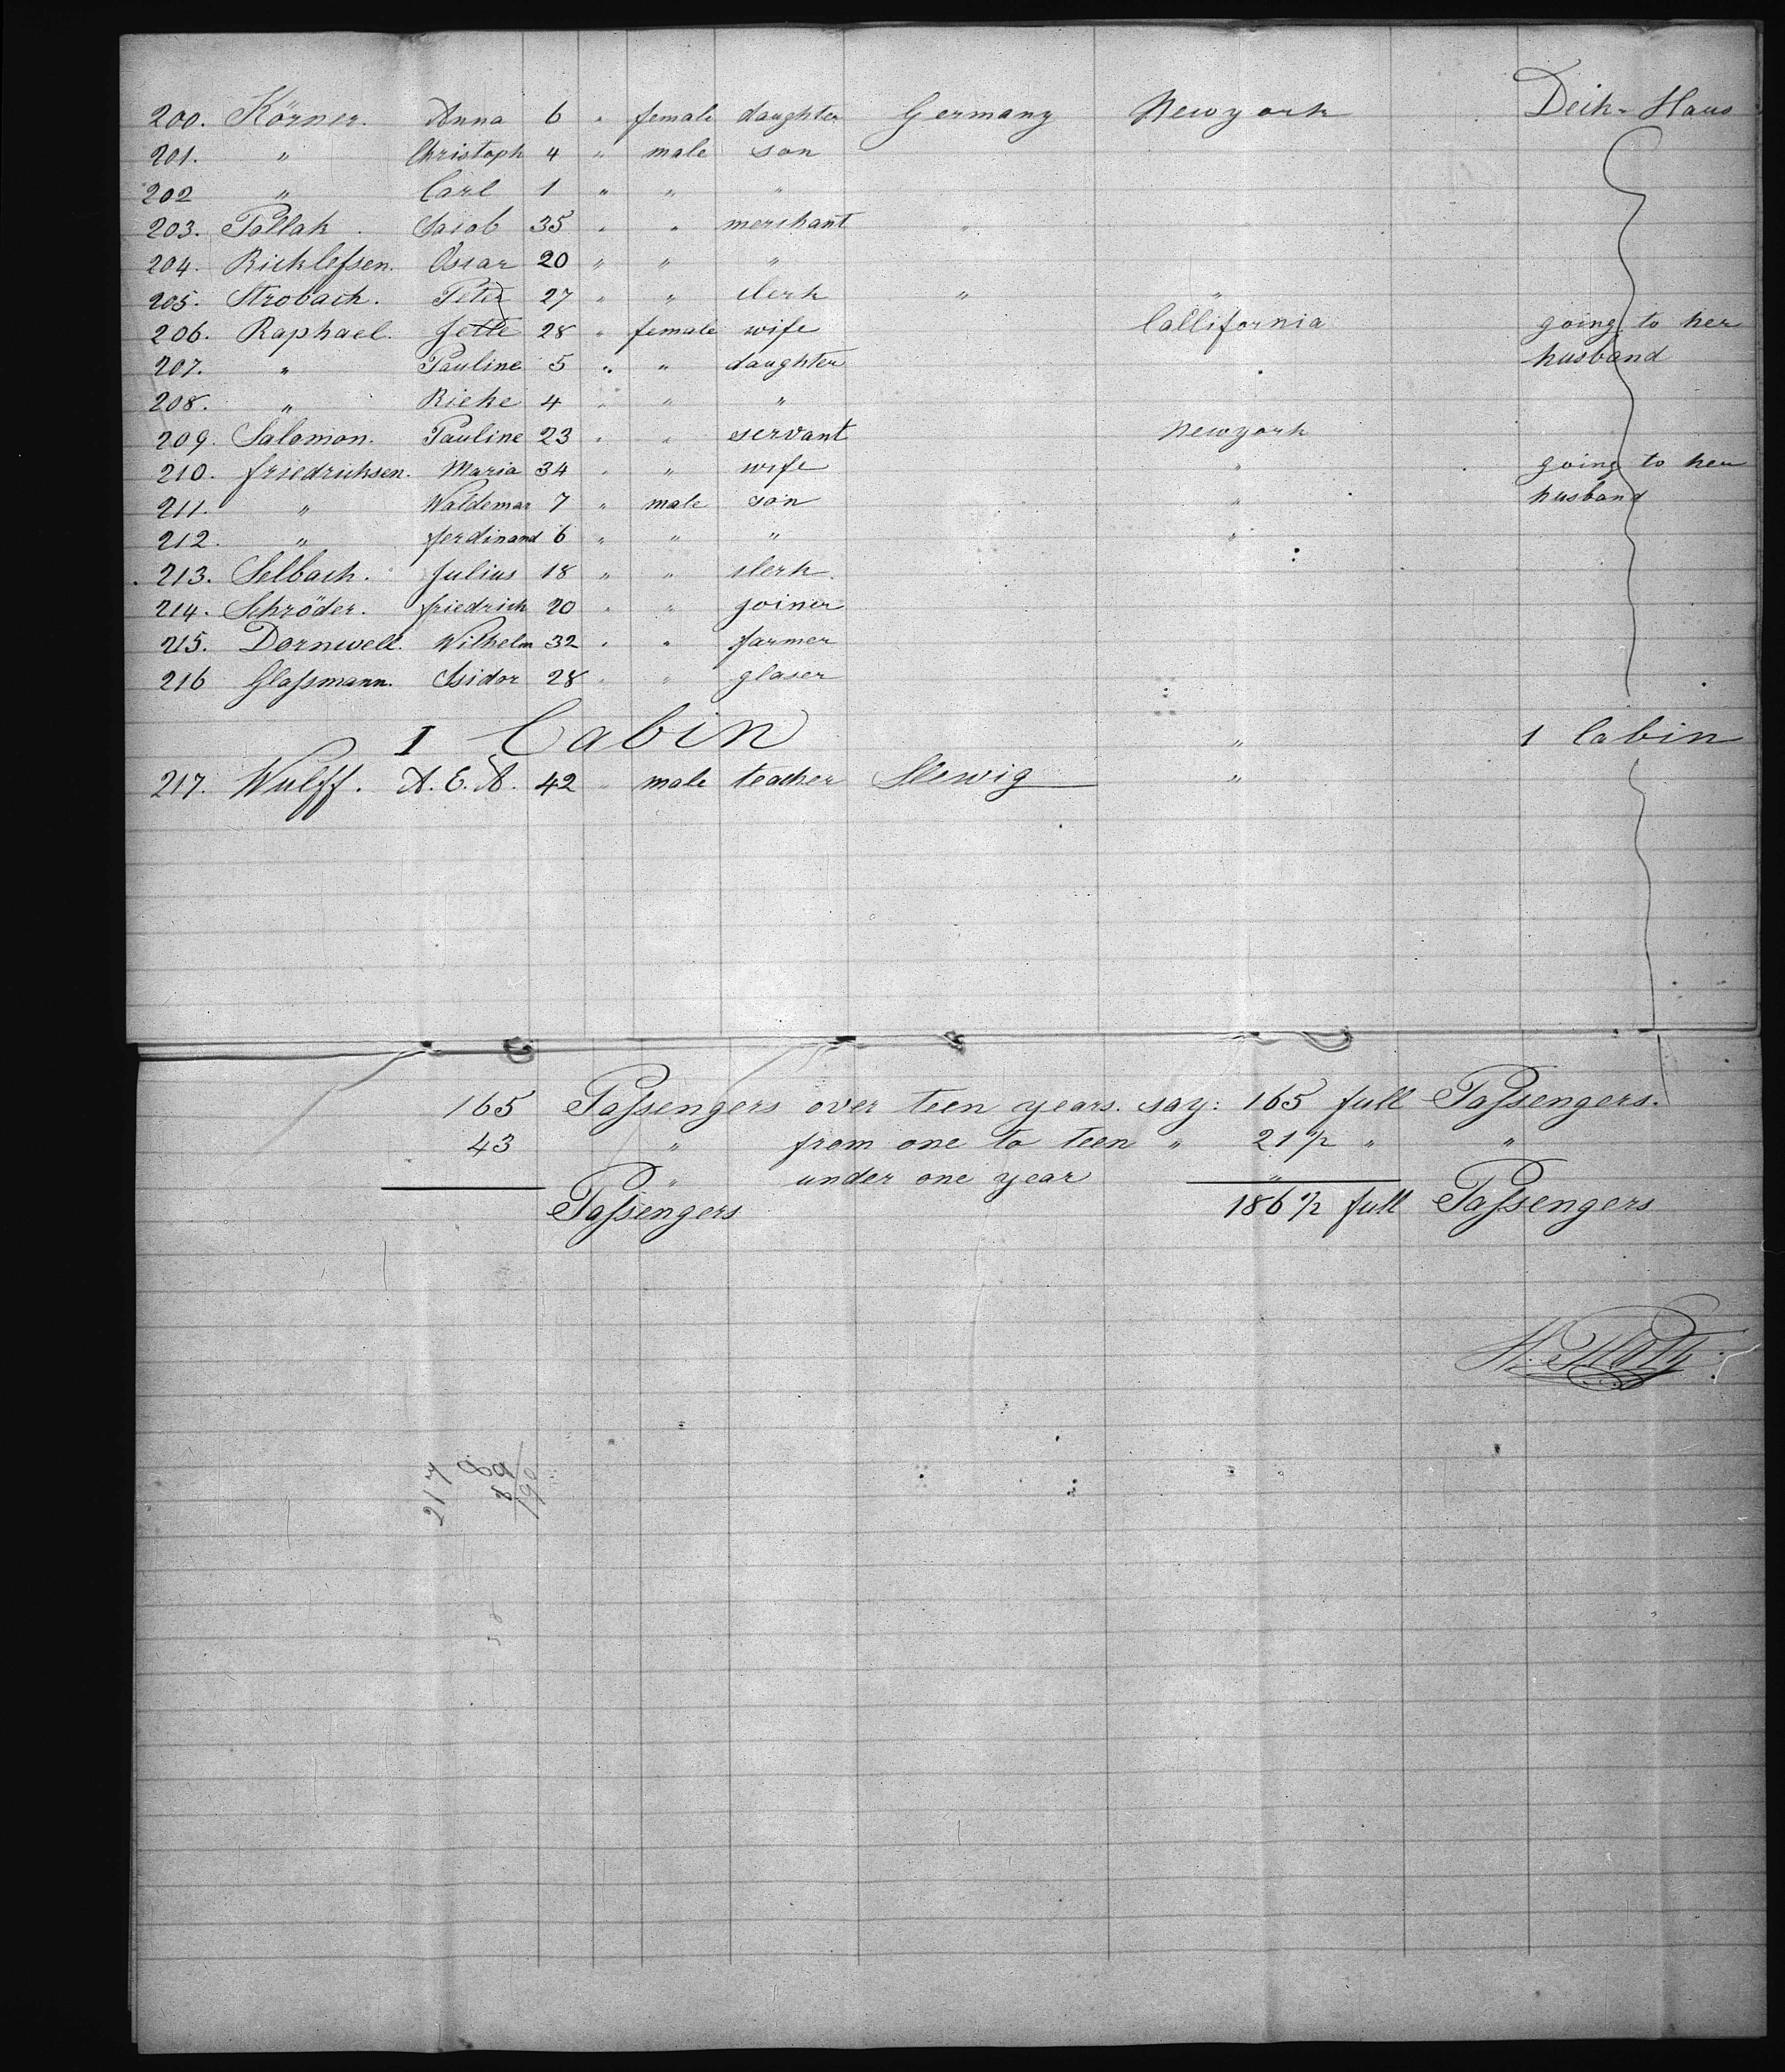 200. Körner. Anna 6 " female daughter Germany Newyork Deck-Haus
201. " Christoph 4 " male son
202 " Carl 1 " " "
203. Pollak. Jacob 35 " " merchant "
204. Ricklefsen. Oscar 20 " " "
205. Strobach. Peter 27 " " clerk " "
206. Raphael. Jette 28 " female wife Callifornia going to her
207. " Pauline 5 " " daughter husband
208. " Rieke 4 " " "
209. Salomon. Pauline 23 " " servant Newyork
210. Friedrichsen. Maria 34 " " wife " going to her
211. " Waldemar 7 " male son " husband
212. " Ferdinand 6 " " " "
213. Selbach. Julius 18 " " clerk.
214. Schröder. Friedrich 20 " " joiner
215. Dornwell. Wilhelm 32 " " farmer
216 Glaſsmann. Isidor 28 " " glaser
I Cabin " 1 Cabin
217. Wulff. A. E. A. 42 " male teacher Slewig "
165 Paſsengers over teen years. say: 165 full Paſsengers.
43 " from one to teen " 21 1/2 " "
" under one year "
Paſsengers 186 1/2 full Paſsengers
217